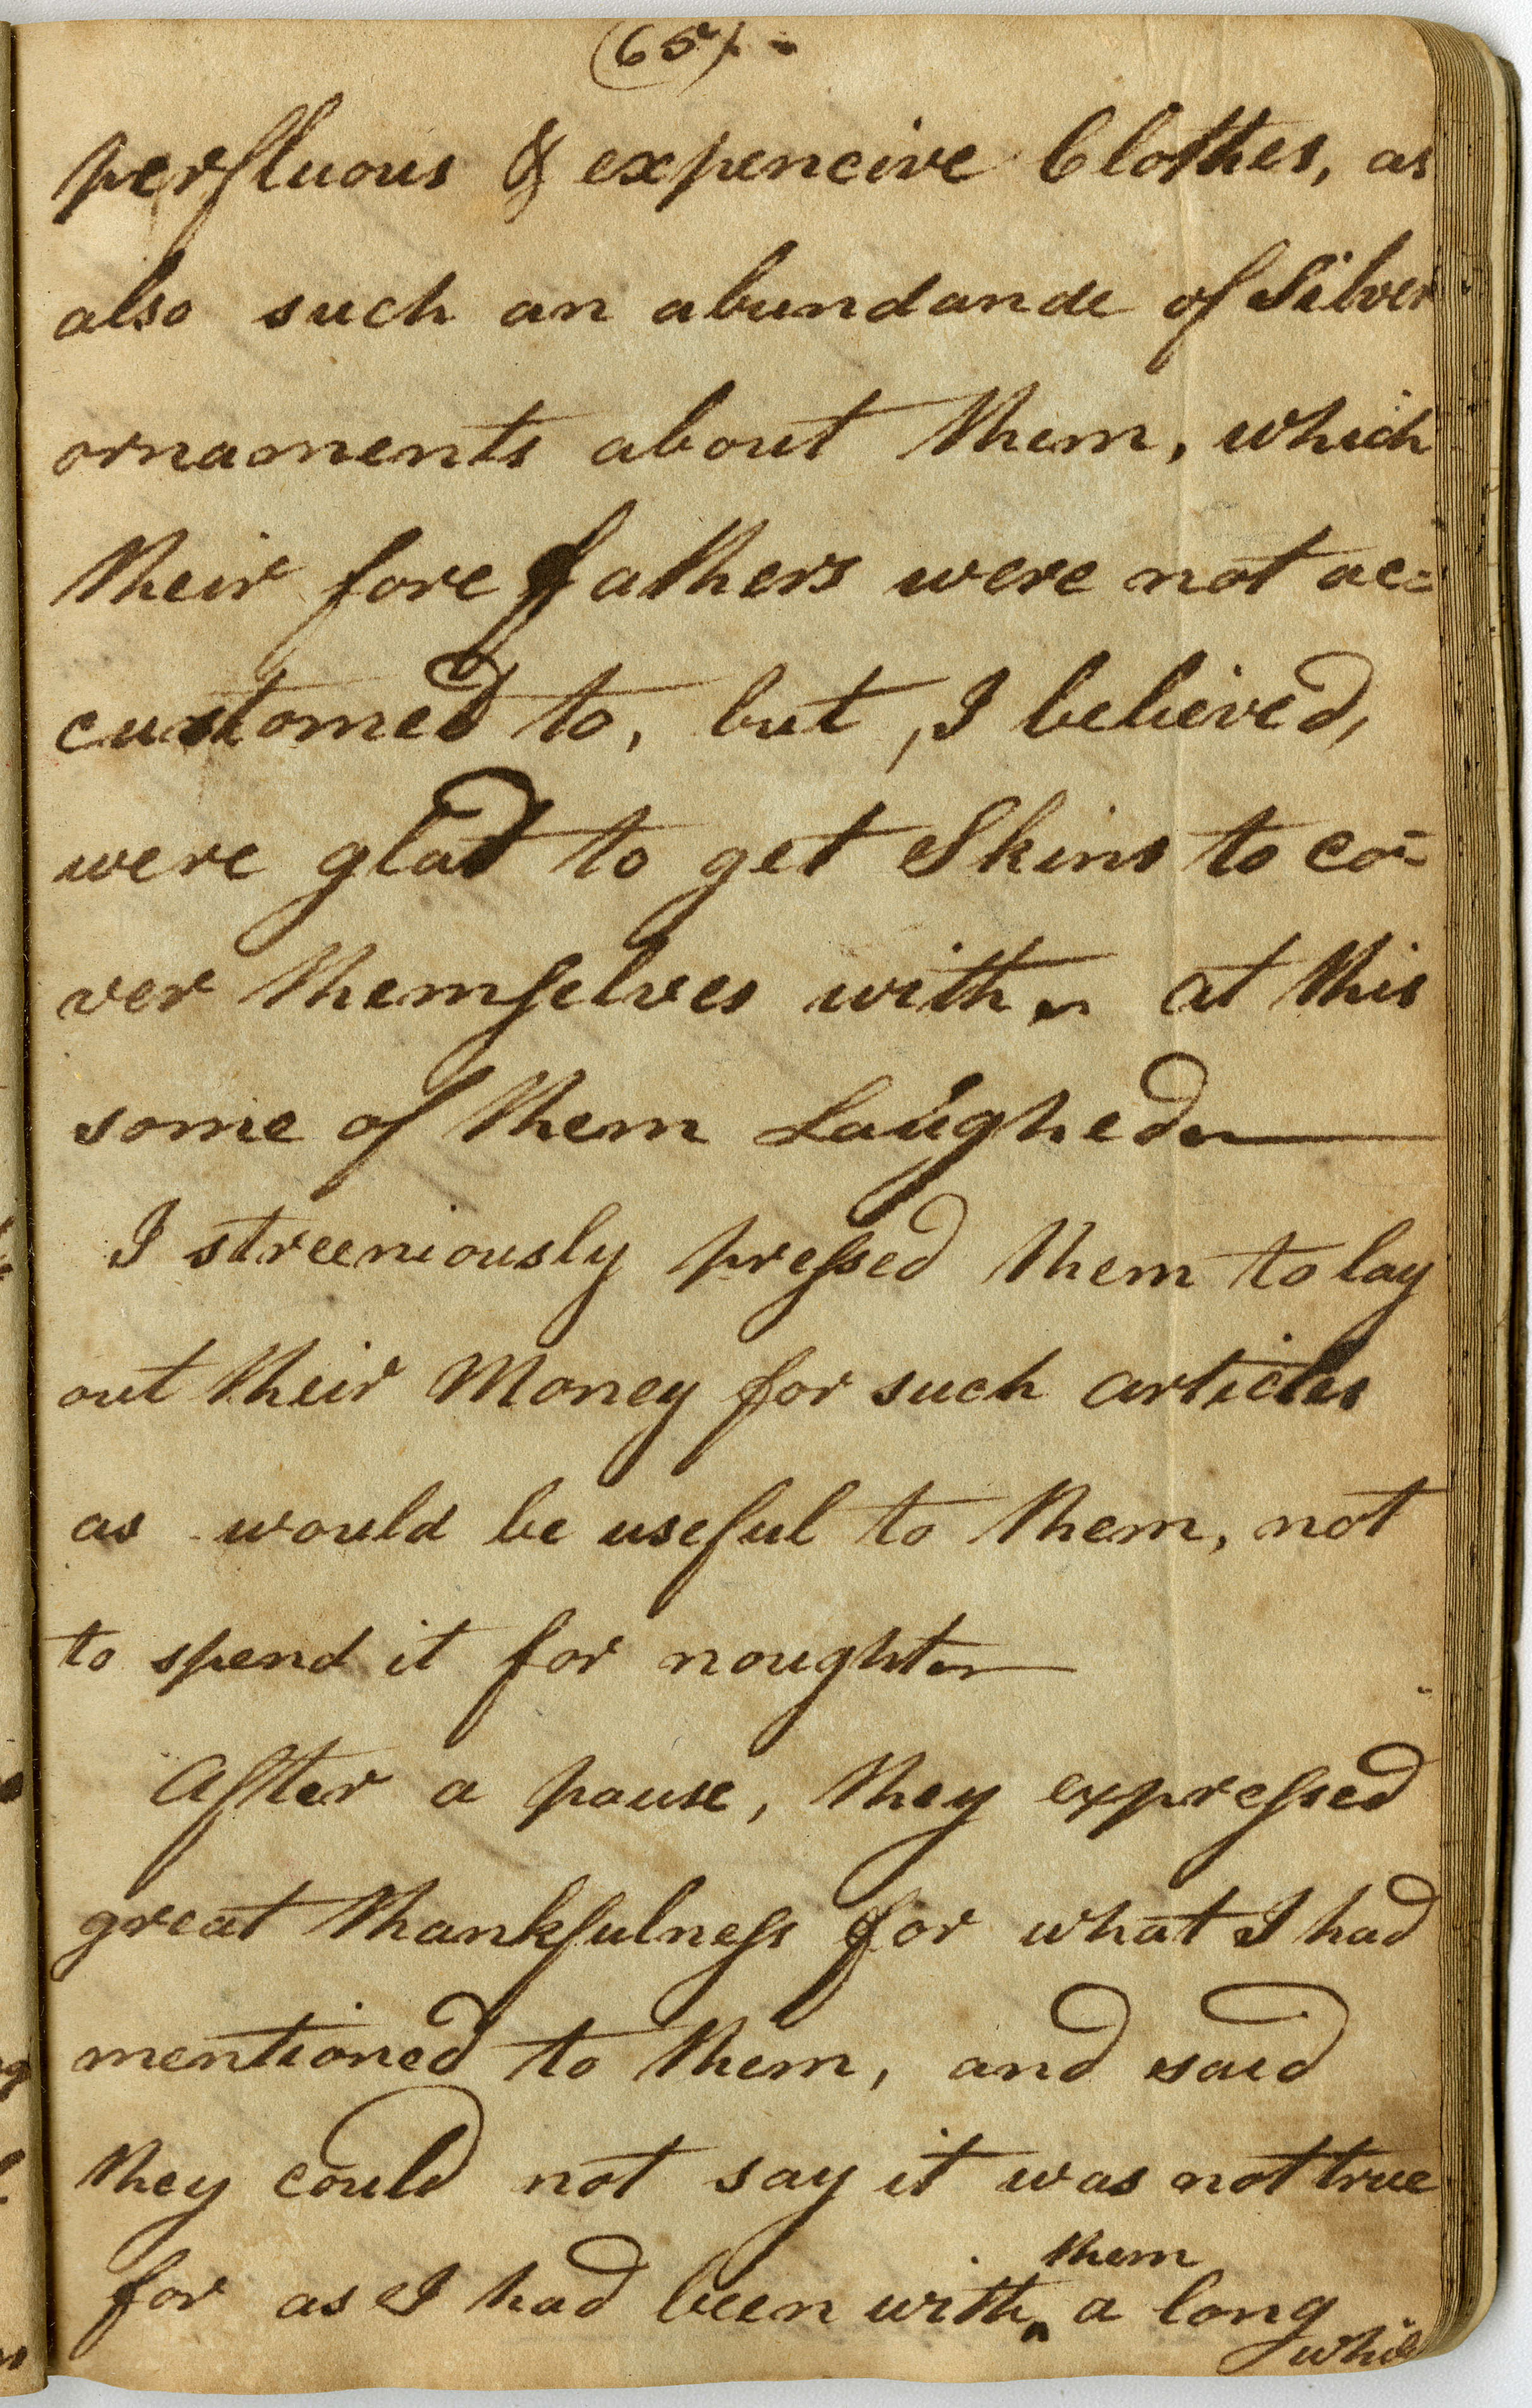 (65). -
perfluous & expencive Clothes, as
also such an abundande of Silver
ornaments about them, which
their fore fathers were not ac=
customed to, but, I believed,
were glad to get Skins to co=
ver themselves with ~ at this
some of them Laughed ~
I streeniously pressed them to lay
out their Money for such articles
as would be useful to them, not
to spend it for nought ~
After a pause, they expressed
great thankfulness for what I had
mentioned to them, and said
they could not say it was not true
them
for as I had been with ^ a long
while